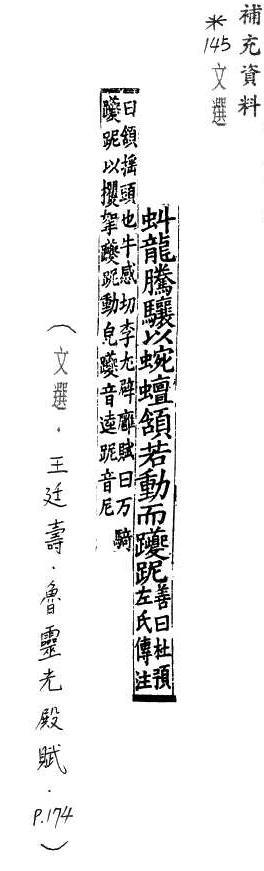 補充資料
※145 文選
虯龍騰驤以蜿蟺頷若動而躨跜
善曰杜預
左氏傳注
曰頷搖頭也牛感切李尤辟廱賦曰万騎
躨跜以攫拏躨跜動皃躨音逵跜音尼
（文選．王廷壽．魯靈光殿賦．P.174）